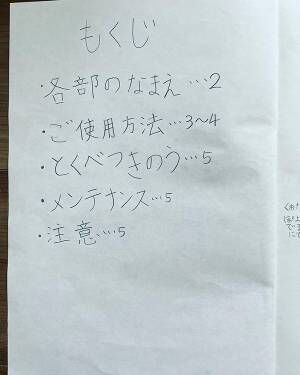 もくじ
・各部のなまえ…2
・ご使用方法…3〜4
・とくべつきのう…5
・メンテナンス…5
・注意….5